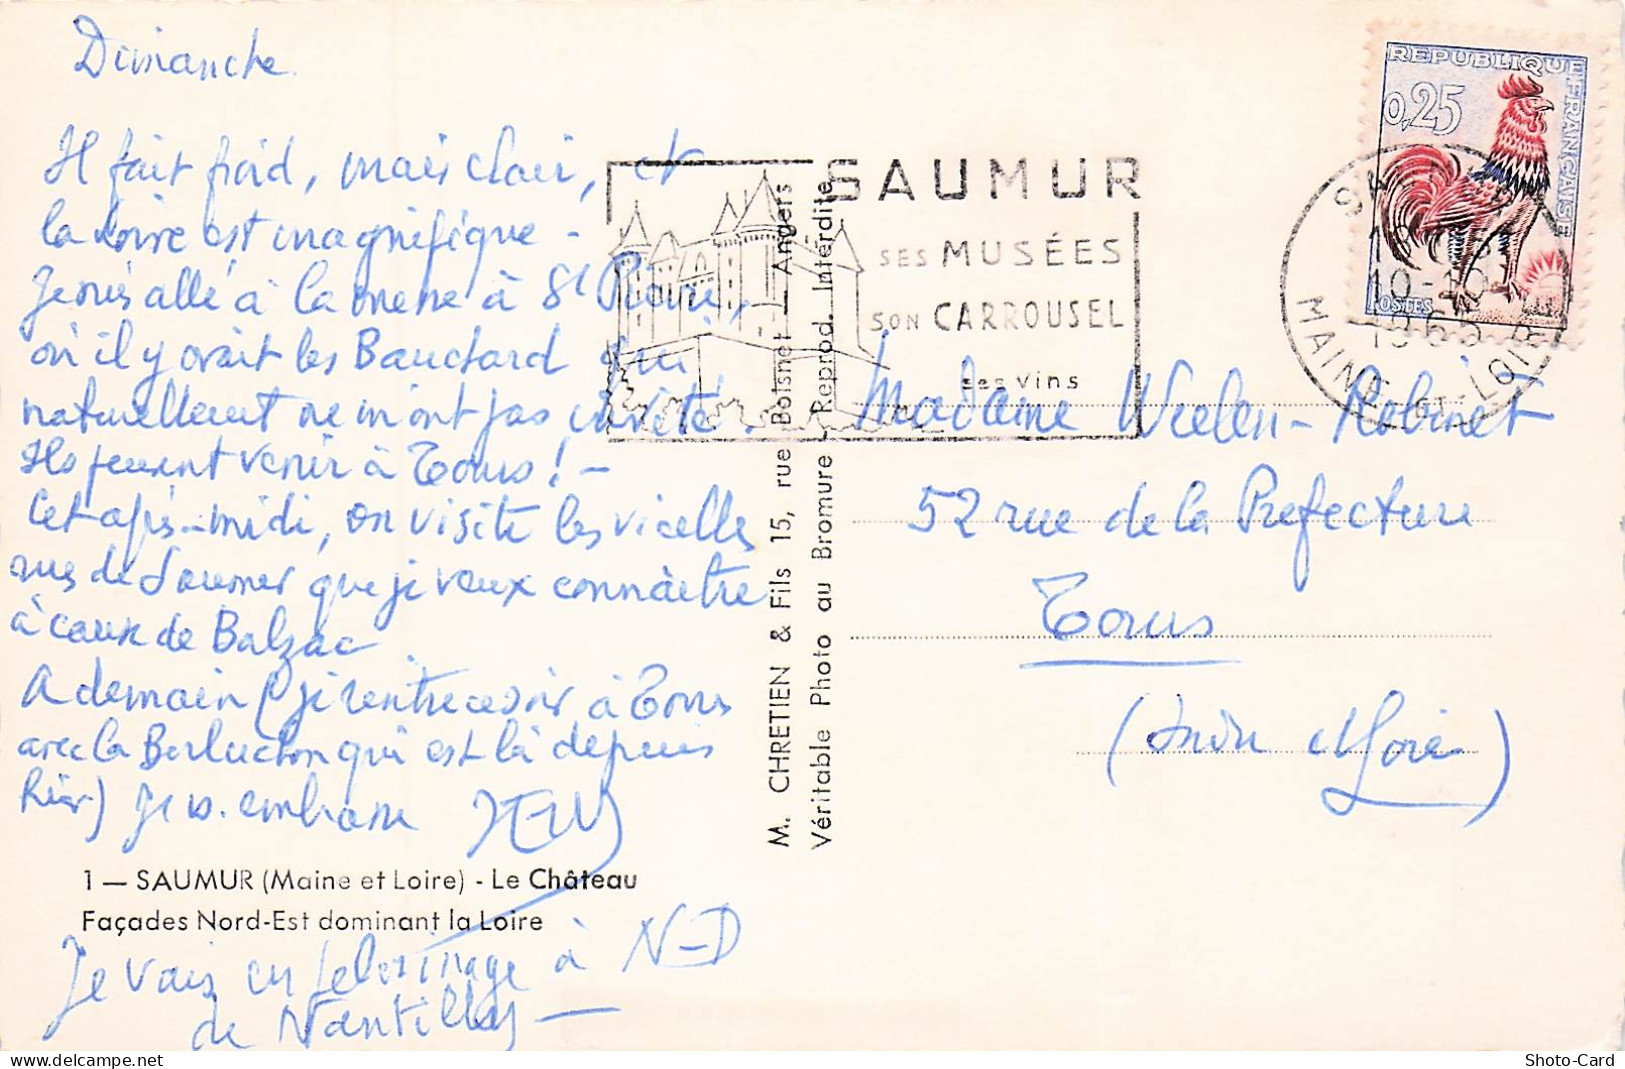 Dimanche
Il fait froid, mais clair, et
la Loire est magnifique -
Je suis allé à la messe à St Pierre,
où il y avait les Bauchard qui
naturellement ne m'ont pas invité.
Ils peuvent venir à Tours ! -
Cet-après-midi, on visite les vieilles
rues de Saumur que je veux connaître
à cause de Balzac
A demain (je rentre ce soir à Tours
avec la Berluchon qui est là depuis
hier) Je v. embrasse
1 — SAUMUR (Maine et Loire) - Le Château
Façades Nord-Est dominant la Loire
Je vais en pelerinage à N-D
de Nantilly —
M. CHRETIEN & Fils 15, rue Boisnet - Angers
Véritable Photo au Bromure - Reprod. Interdite
SAUMUR
SES MUSÉES
SON CARROUSEL
ses vins
REPUBLIQUE FRANÇAISE
0,25
POSTES
SAUMUR
10-10
1965
MAINE ET LOIRE
Madame Weelen-Robinet
52 rue de la Prefecture
Tours
(Indre et Loire)
Shoto-Card